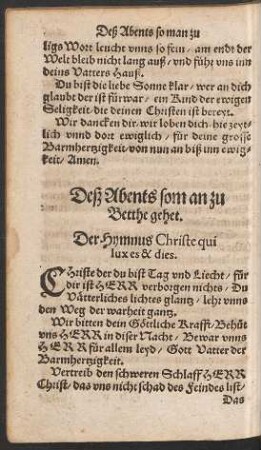 Deß Abents so man zu
ligs Wort leucht vnns so fein/ am endt der
Welt bleib nicht lang auß/ vnd führ vns inn
deins Vatters Hauß.
Du bist die liebe Sonne klar/ wer an dich
glaubt der ist fürwar/ ein Kind der ewigen
Seligkeit/ die deinen Christen ist bereyt.
Wir dancken dir/ wir loben dich/ hie zeyt-
lich vnnd dort ewiglich/ für deine grosse
Barmhertzigkeit/ von nun an biß inn ewig-
keit/ Amen.
Deß Abents som an zu
Betthe gehet.
Der Hymnus Christe qui
lux es & dies.
CHriste der du bist Tag vnd Liecht/ für
dir ist HERR verborgen nichts/ Du
Vätterliches lichtes glantz/ lehr vnns
den Weg der warheit gantz.
Wir bitten dein Göttliche Krafft/ Behüt
vns HERR in diser Nacht/ Bewar vnns
HERR für allem leyd/ Gott Vatter der
Barmhertzigkeit.
Vertreib den schweren Schlaff HERR
Christ/ das vns nicht schad des Feindes list/
Das